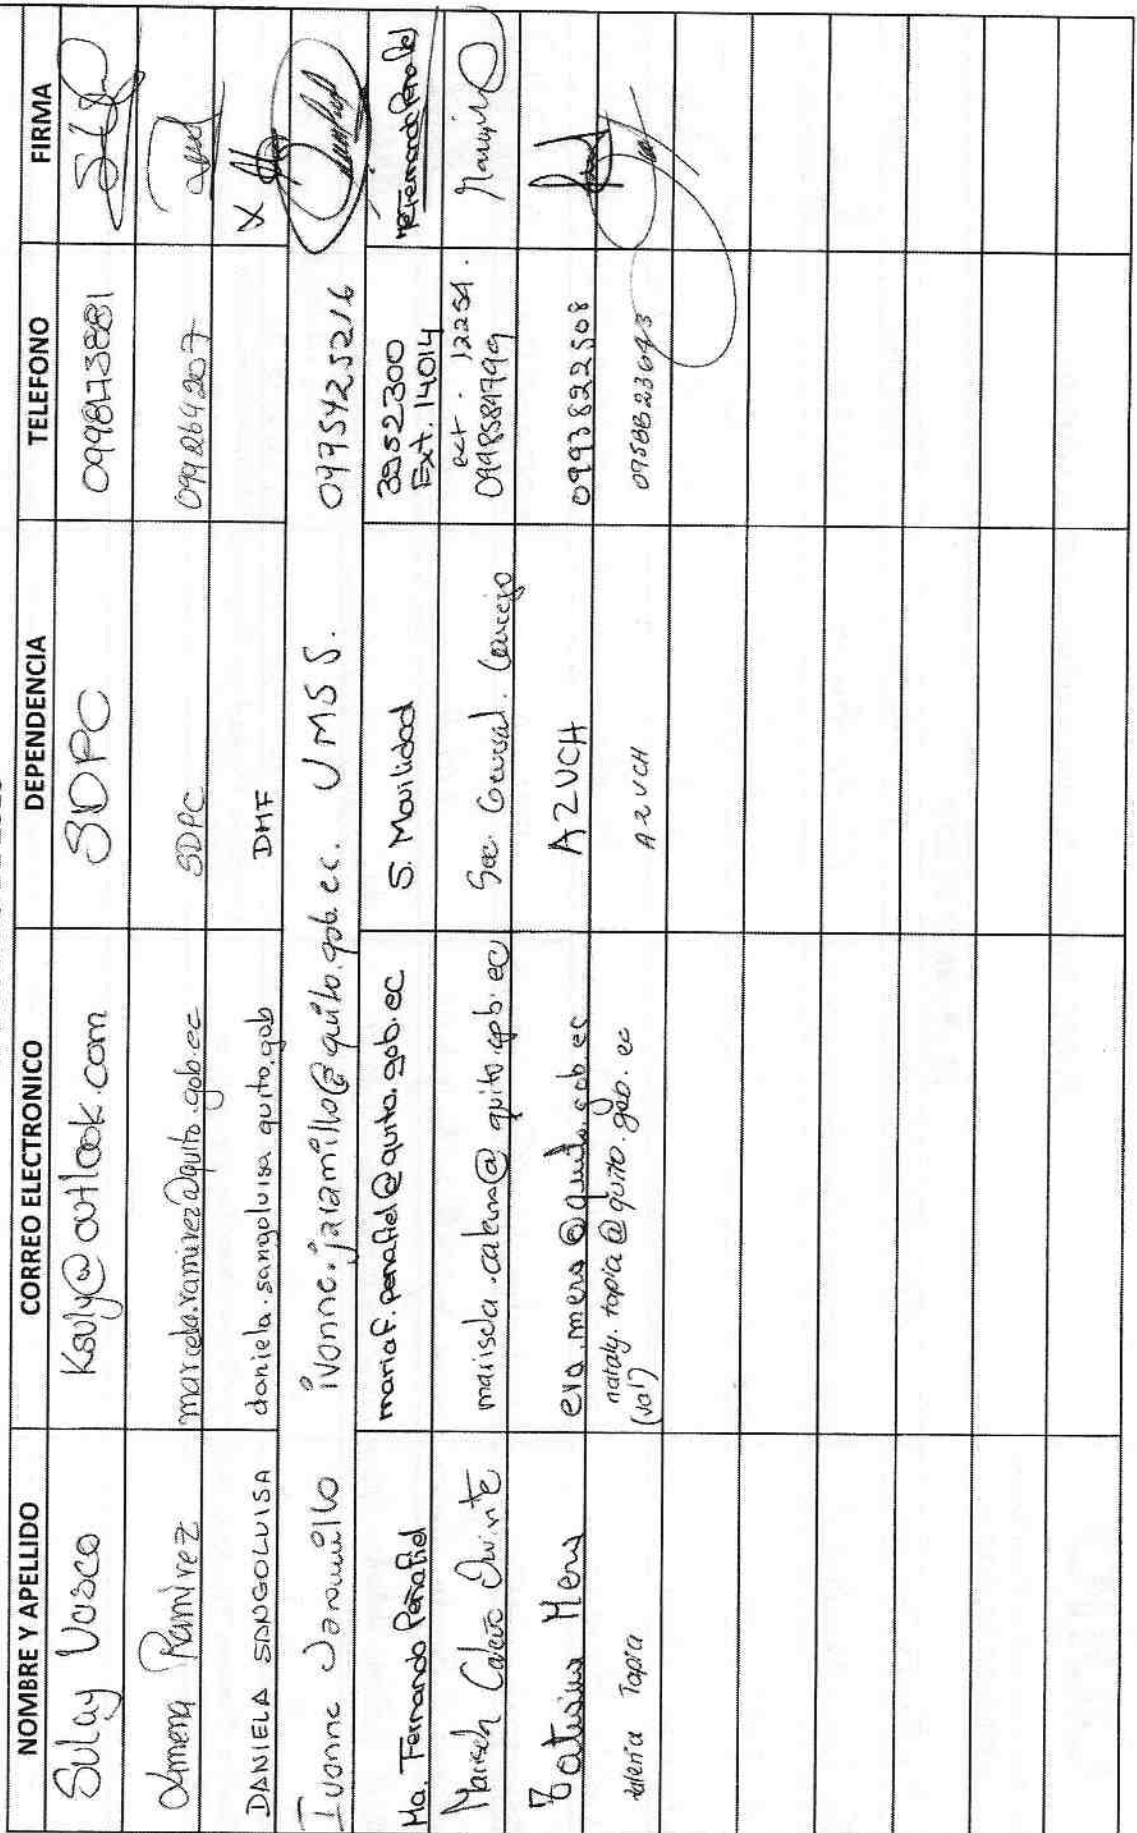 NOMBRE Y APELLIDO CORREO ELECTRONICO DEPENDENCIA TELEFONO FIRMA
Sulay Vasco Ksuly@outlook.com SDPC 099873881
Ximena Ramírez marcela.ramirez@quito.gob.ec SDPC 099264207
DANIELA SANGOLUISA daniela.sangoluisa quito.gob DMF X
Ivonne Jaramillo ivonne.jaramillo@quito.gob.ec. UMSS. 0975425216
Ma. Fernanda Peñafiel mariaf.penafiel@quito.gob.ec S. Movilidad 3952300
Ext. 14014
Marisela Quinte marisela @quito.gob.ec Sec. General. Concejo ext. 12254.
Mera eva.mera@quito.gob.ec AZVCH 0993822508
Valeria Tapia nataly.tapia@quito.gob.ec AZVCH
(val)